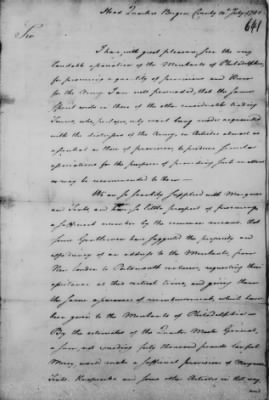 Head Quarters Bergen County 10th July 1780
641
Sir
I have, with great pleasure, seen the very
laudable operation of the Merchants of Philadelphia,
for procuring a quantity of provisions and Rum
for the Army. I am well persuaded, that the same
Spirit exists in those of the other considerable trading
Towns, who, perhaps, only want being made acquainted
with the distresses of the Army, in Articles almost as
essential as those of provisions, to produce similar
operations for the purpose of providing such as
may be recommended to them
We are so scantily supplied with Marquees
and Tents, and have so little prospect of procuring
a sufficient number by the common means that
some Gentlemen have suggested the propriety and
efficacy of an address to the Merchants, from
New London to Portsmouth inclusive, requesting their
assistance at this critical time, and giving them
the same assurances of reimbursement, which have
been given to the Merchants of Philadelphia
By the estimates of the Quarter Master General,
a sum, not exceeding forty thousand pounds lawful
Money, would make a sufficient provision of Marquees
Tents, Knapsacks and some other Articles in that way
and